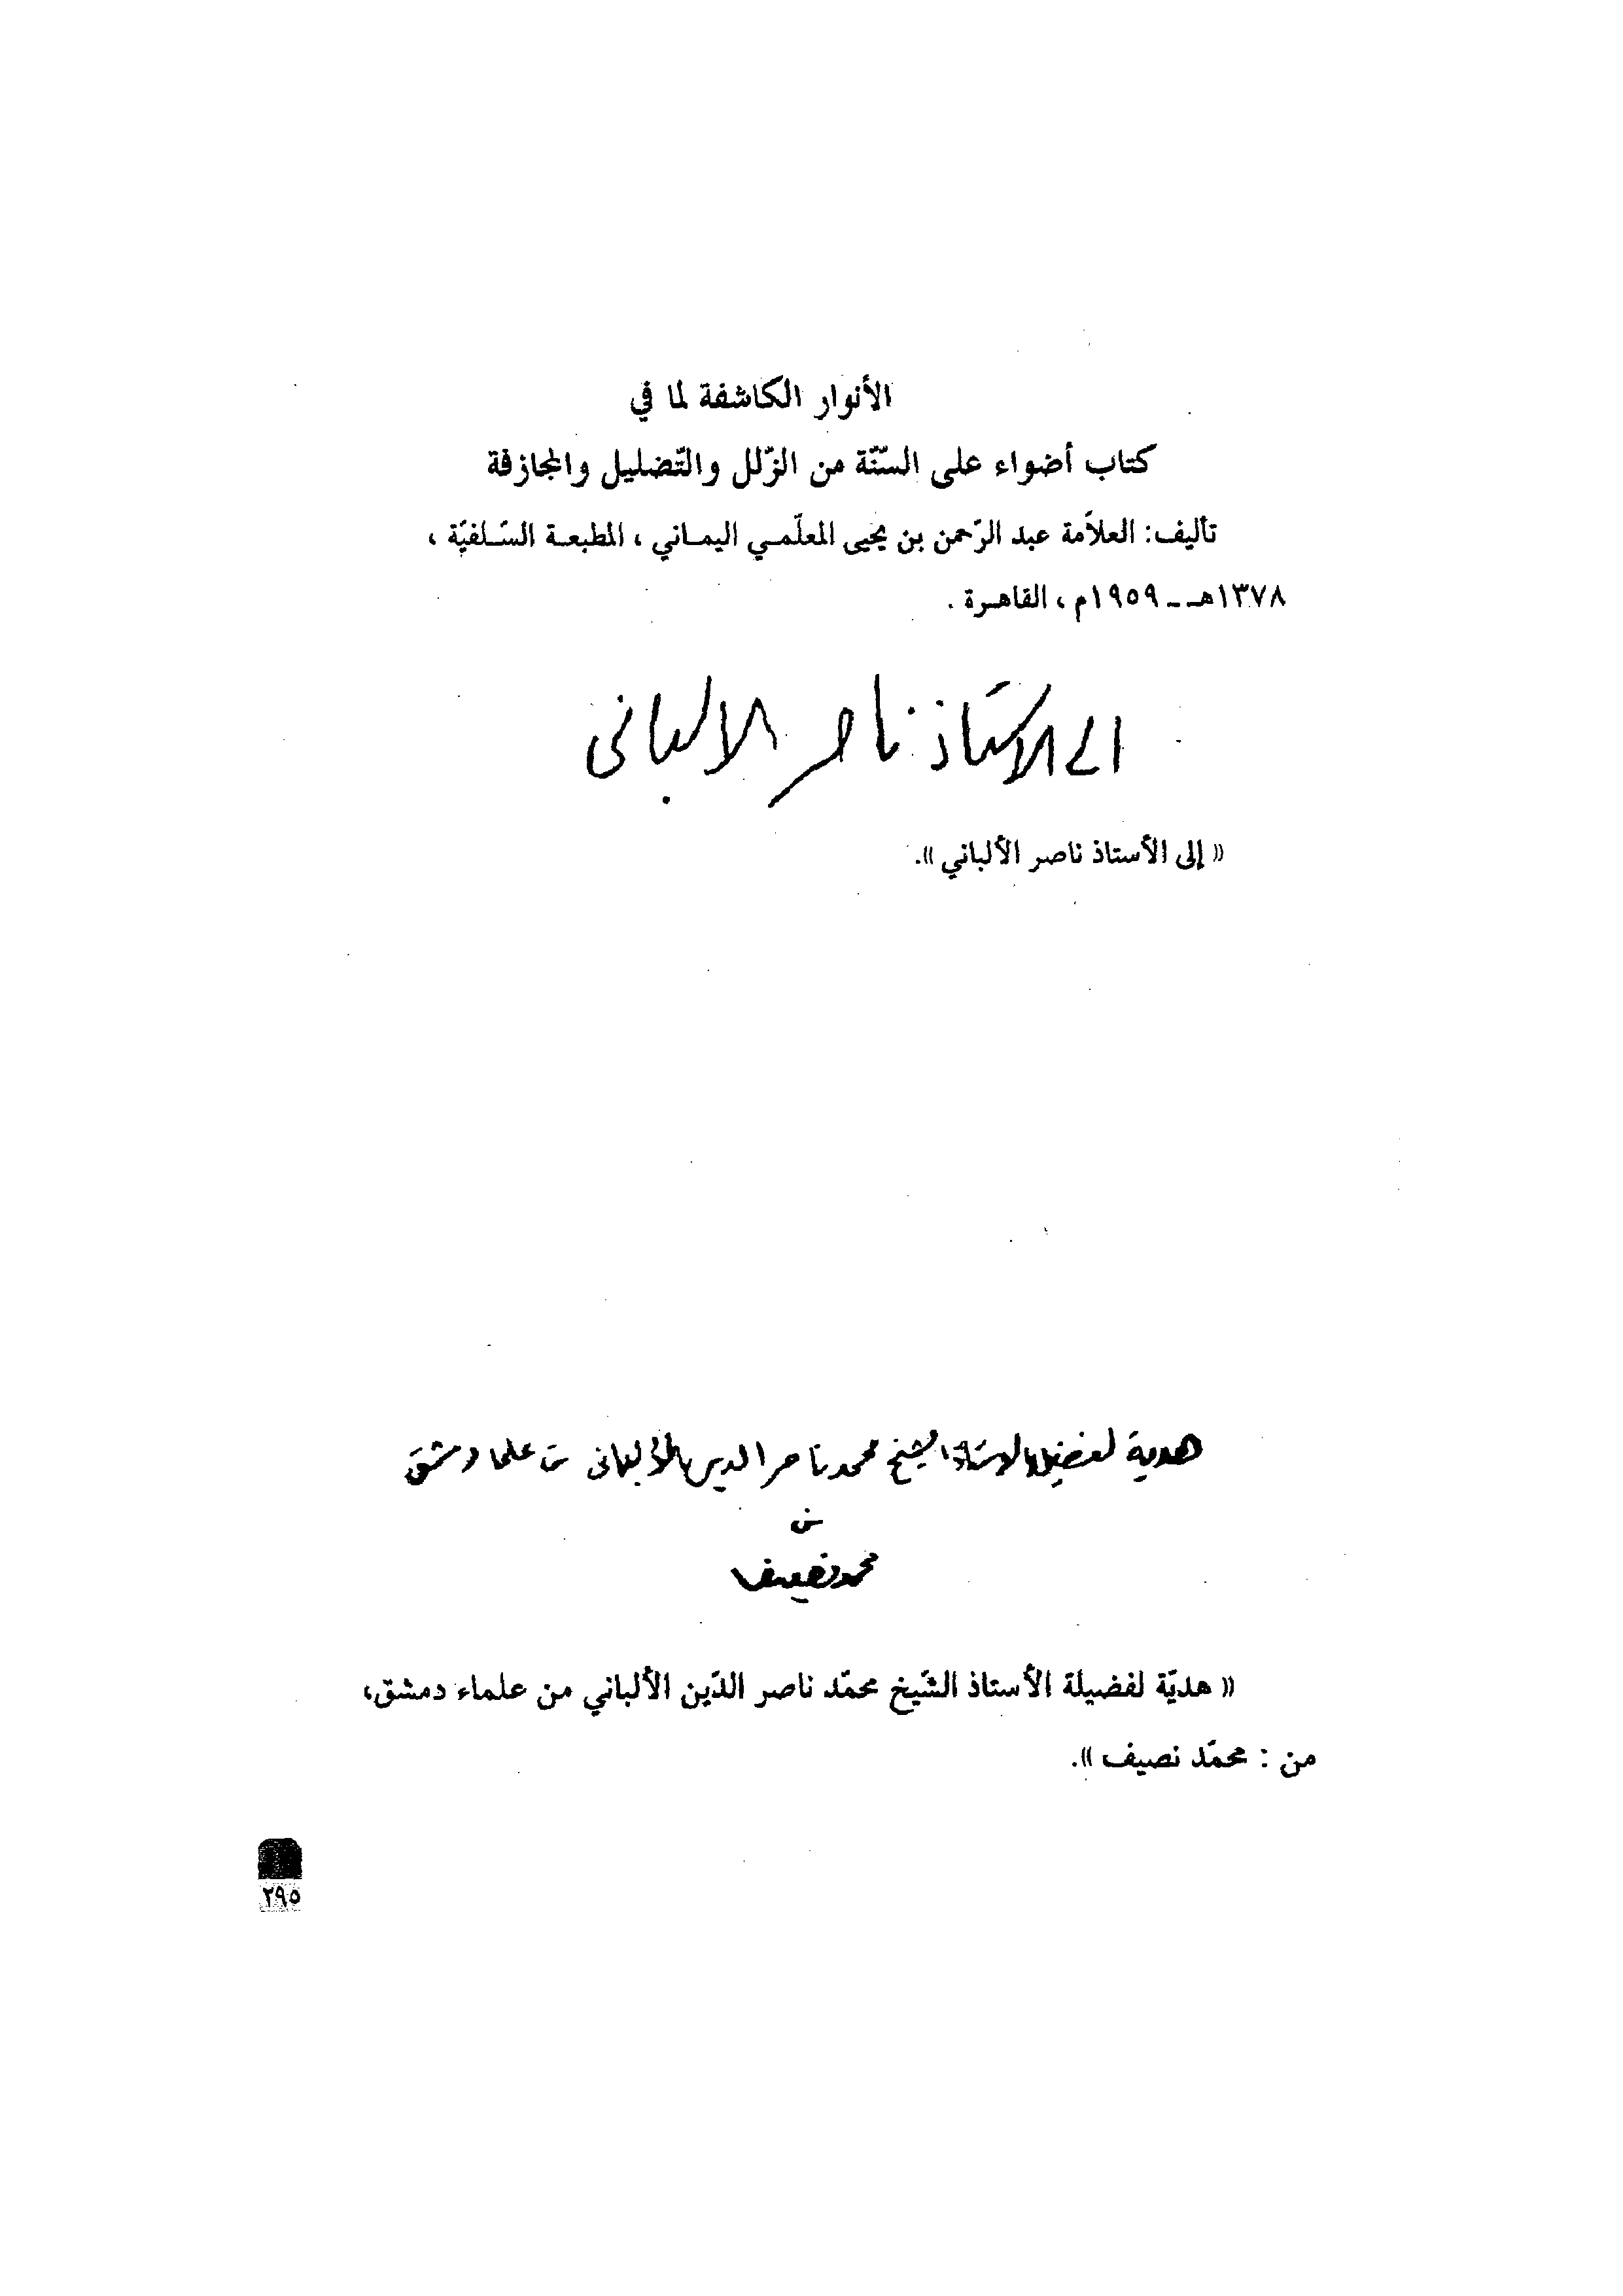 الأنوار الكاشفة لما في
كتاب أضواء على السّنّة من الزّلل والتّضليل والمجازفة
تأليف: العلاّمة عبد الرّحمن بن يحيى المعلّمـي اليمـاني ، المطبعـة السّـلفيّة ،
١٣٧٨هـ ـ ١٩٥٩م ، القاهـرة .
الى الاستاذ ناصر الالبانى
« إلى الأستاذ ناصر الألباني ».
هدية لفضيلة الاستاذ الشيخ محمد ناصر الدين الألبانى من علماء دمشق
من
محمد نصيف
« هديّة لفضيلة الأستاذ الشّيخ محمّد ناصر الدّين الألباني من علماء دمشق،
من : محمّد نصيف ».
٢٩٥